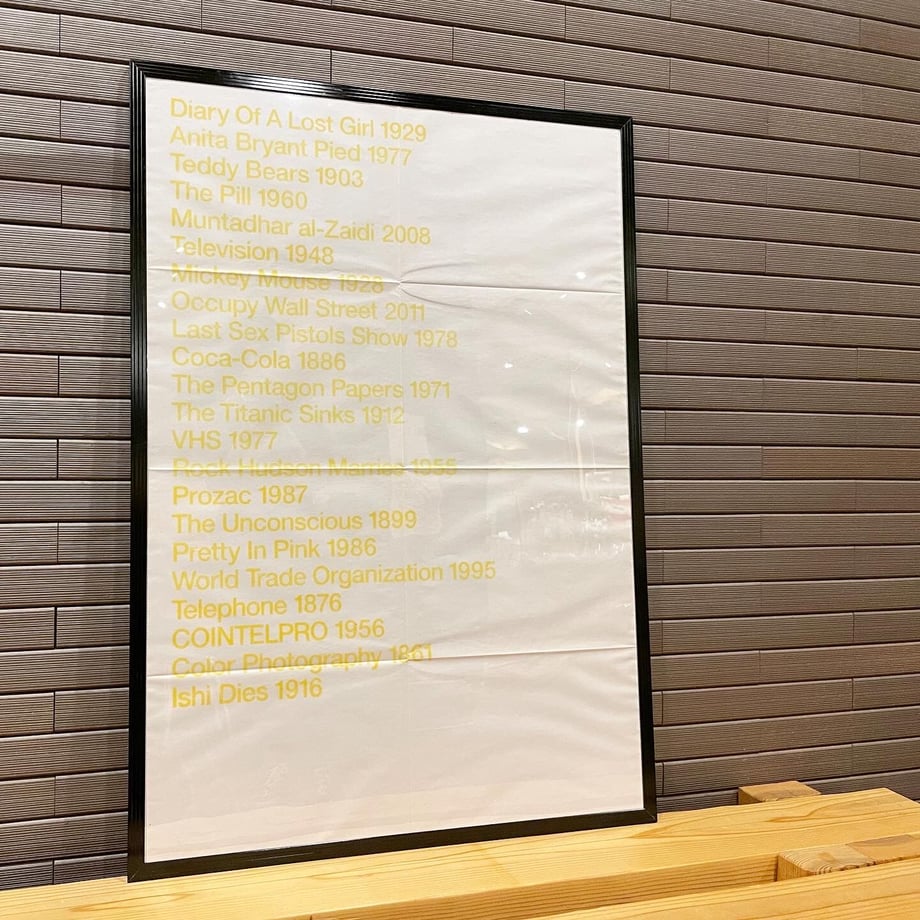 Diary Of A Lost Girl 1929
Anita Bryant Pied 1977
Teddy Bears 1903
The Pill 1960
Muntadhar al-Zaidi 2008
Television 1948
Mickey Mouse 1928
Occupy Wall Street 2011
Last Sex Pistols Show 1978
Coca-Cola 1886
The Pentagon Papers 1971
The Titanic Sinks 1912
VHS 1977
Rock Hudson Marries 1955
Prozac 1987
The Unconscious 1899
Pretty In Pink 1986
World Trade Organization 1995
Telephone 1876
COINTELPRO 1956
Color Photography 1861
Ishi Dies 1916